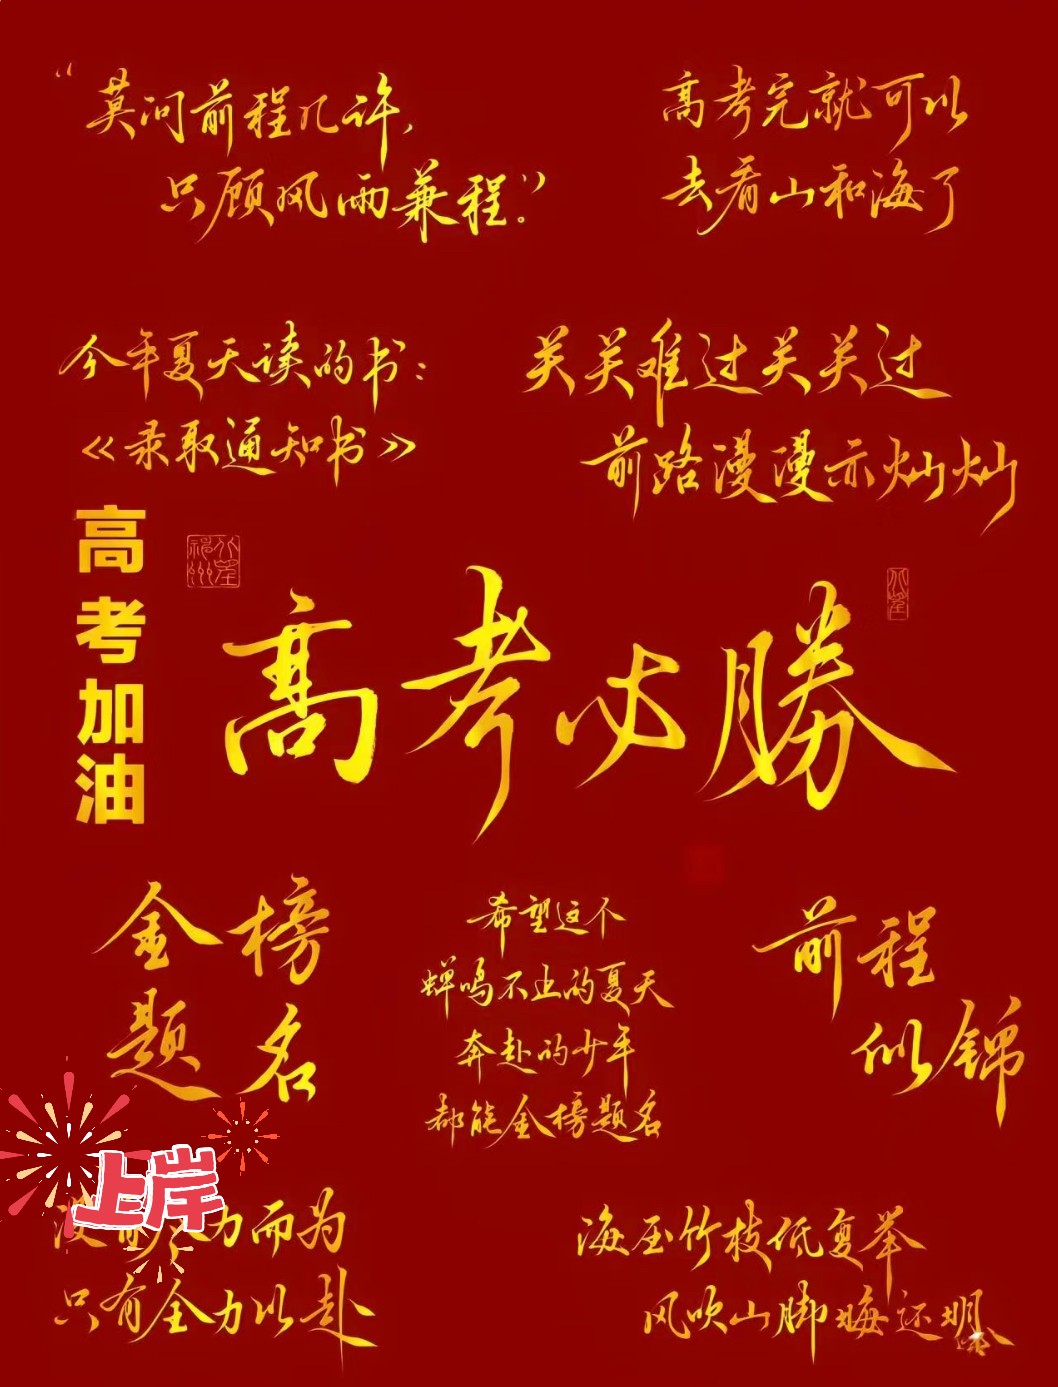 “莫问前程几许，
只顾风雨兼程。”
高考完就可以
去看山和海了
今年夏天读的书：
《录取通知书》
关关难过关关过
前路漫漫亦灿灿
高考加油
高考必勝
金榜
题名
希望这个
蝉鸣不止的夏天
奔赴的少年
都能金榜题名
前程
似锦
上岸
力而为
只有全力以赴
海压竹枝低复举
风吹山脚晦还明